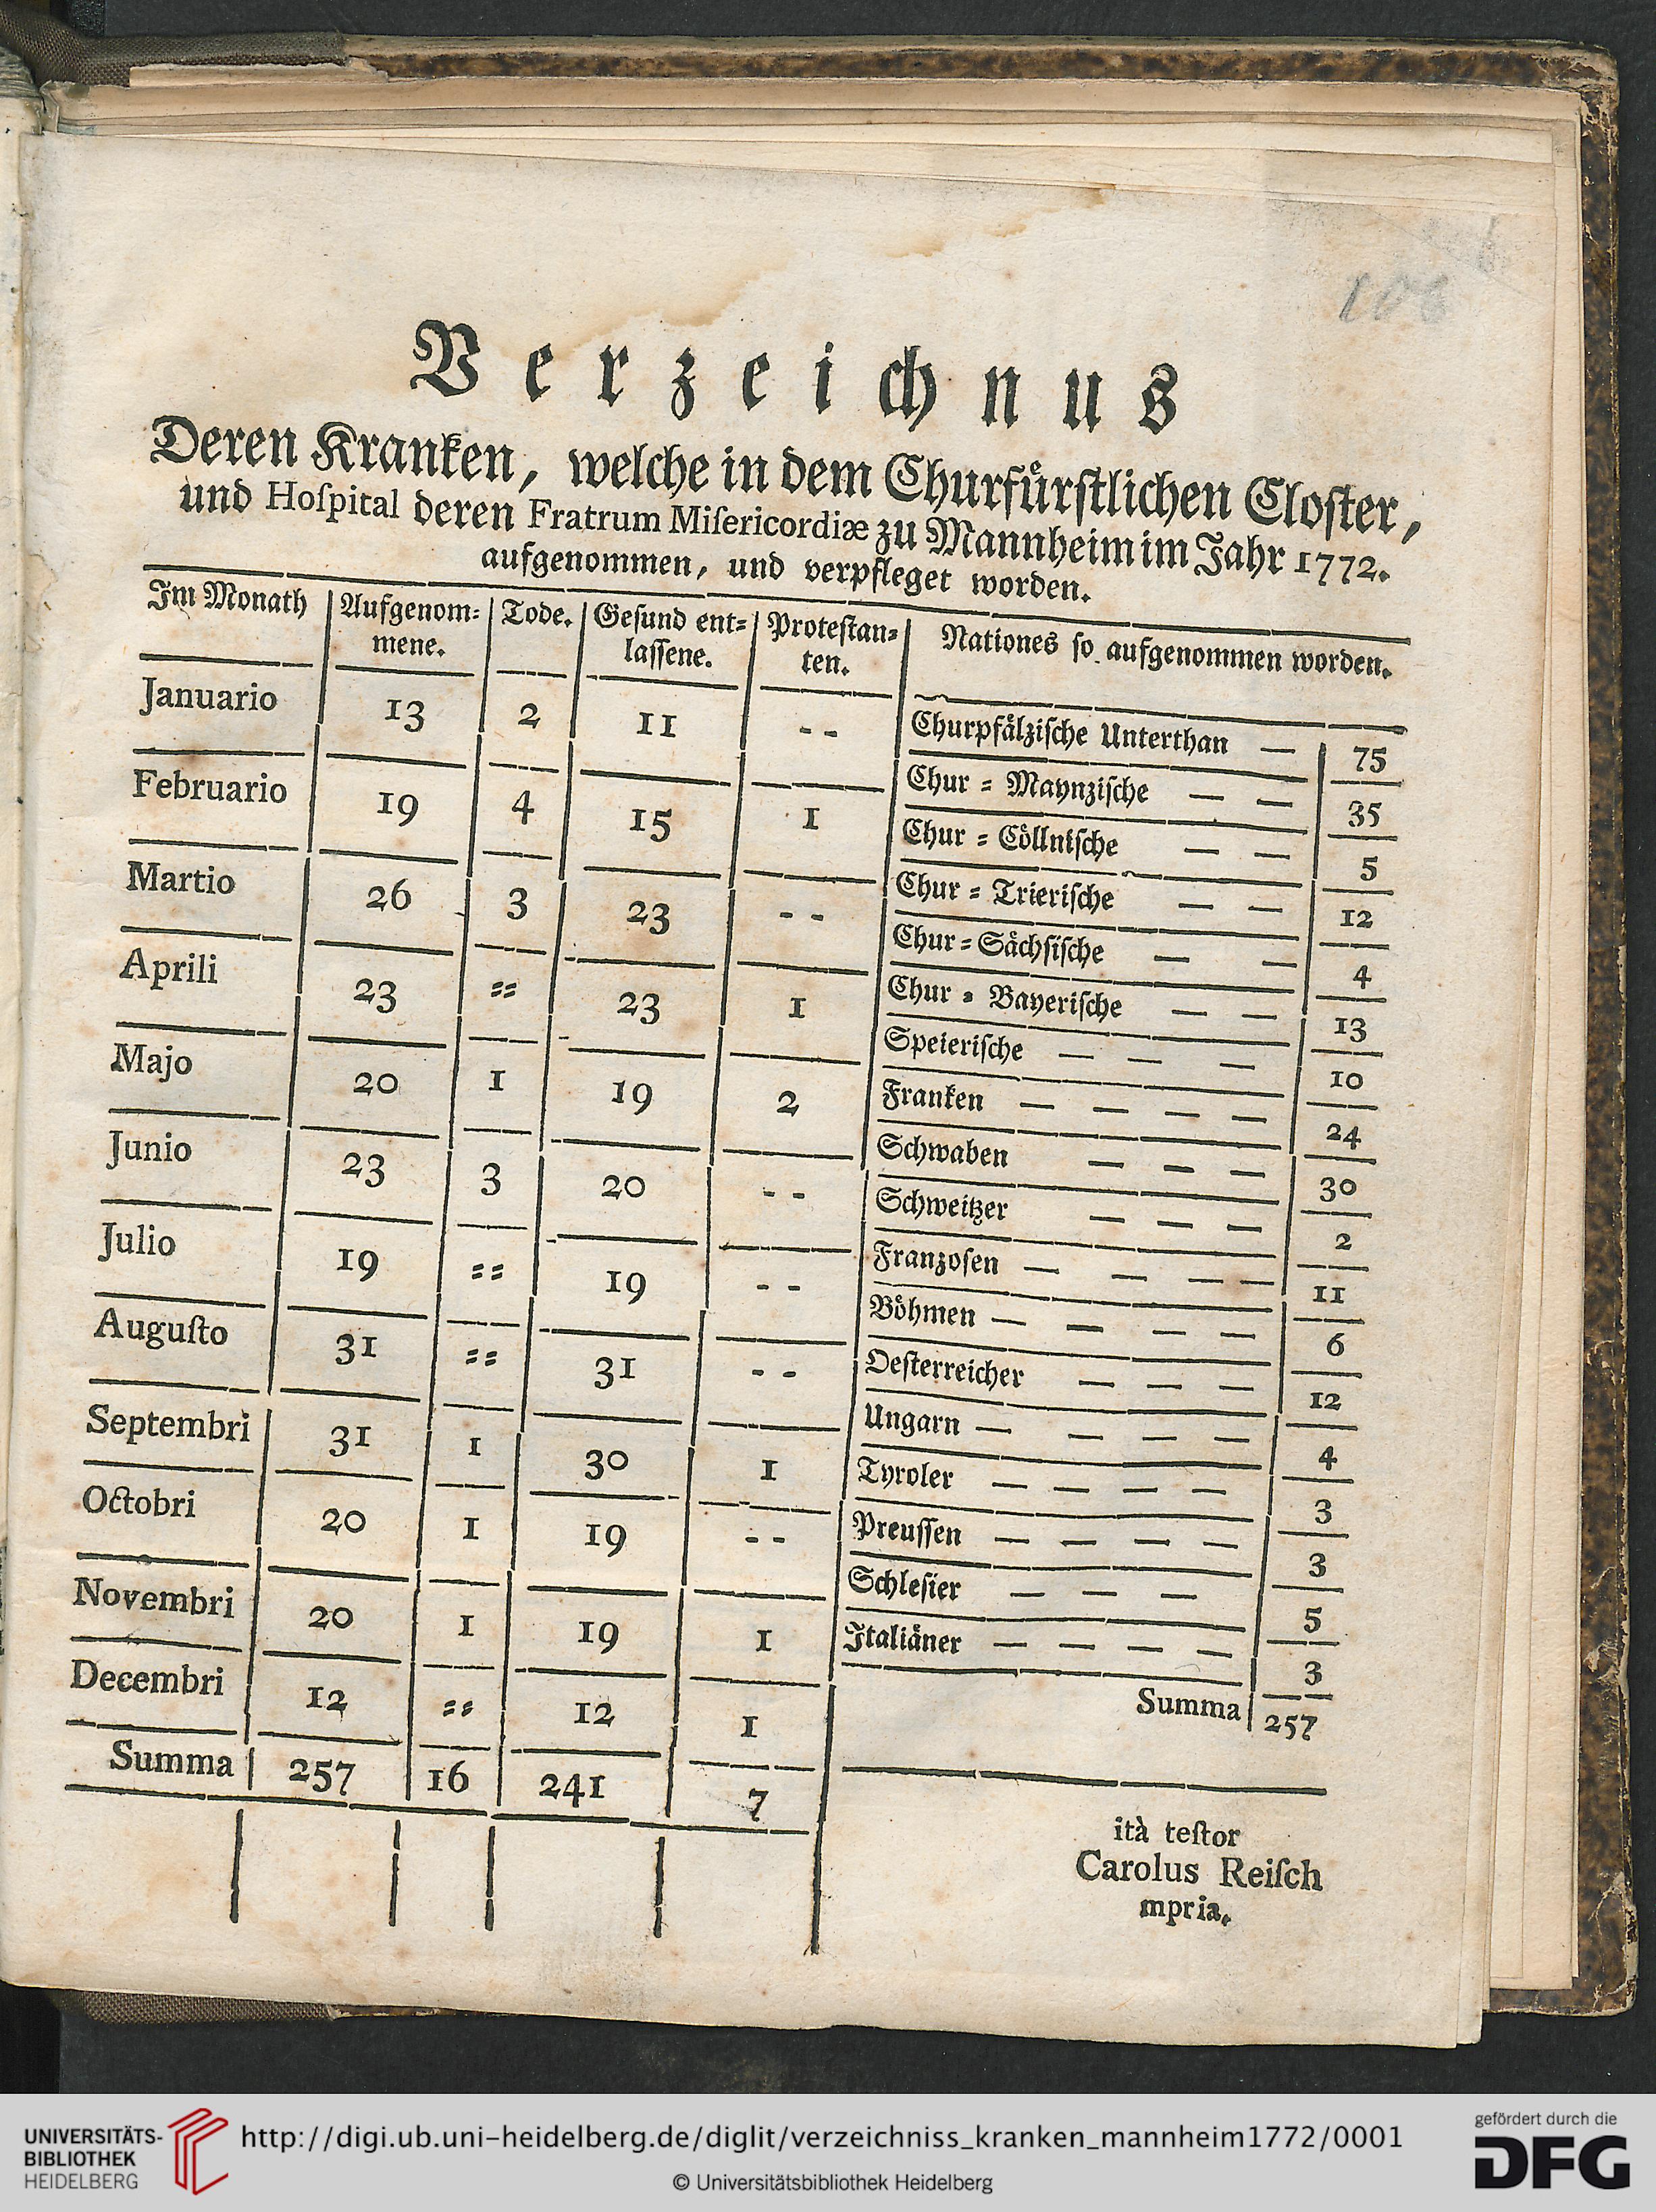 108
Verzeichnus
Deren Kranken, welche in dem Churfürstlichen Closter,
und Hoſpital deren Fratrum Miſericordiæ zu Mannheim im Jahr 1772.
aufgenommen, und verpfleget worden.
Im Monath | Aufgenom=mene. | Tode. | Gesund ent=lassene. | Protestan=ten. | Nationes so aufgenommen worden.
Januario 13 2 11 - -
Februario 19 4 15 1
Martio 26 3 23 - -
Aprili 23 == 23 1
Majo 20 1 19 2
Junio 23 3 20 - -
Julio 19 == 19 - -
Auguſto 31 == 31 - -
Septembri 31 1 30 1
Octobri 20 1 19 - -
Novembri 20 1 19 1
Decembri 12 == 12 1
Summa 257 16 241 7
Churpfälzische Unterthan — 75
Chur = Maynzische — — 35
Chur = Cöllnische — — 5
Chur = Trierische — — 12
Chur = Sächsische — — 4
Chur = Bayerische — — 13
Speierische — — — 10
Franken — — — — 24
Schwaben — — — 30
Schweitzer — — — 2
Franzosen — — — — 11
Böhmen — — — — 6
Oesterreicher — — — 12
Ungarn — — — — 4
Tyroler — — — — 3
Preussen — — — — 3
Schlesier — — — 5
Italiäner — — — — 3
Summa 257
ità teſtor
Carolus Reiſch
mpria.
UNIVERSITÄTS-
BIBLIOTHEK
HEIDELBERG
http://digi.ub.uni-heidelberg.de/diglit/verzeichniss_kranken_mannheim1772/0001
© Universitätsbibliothek Heidelberg
gefördert durch die
DFG